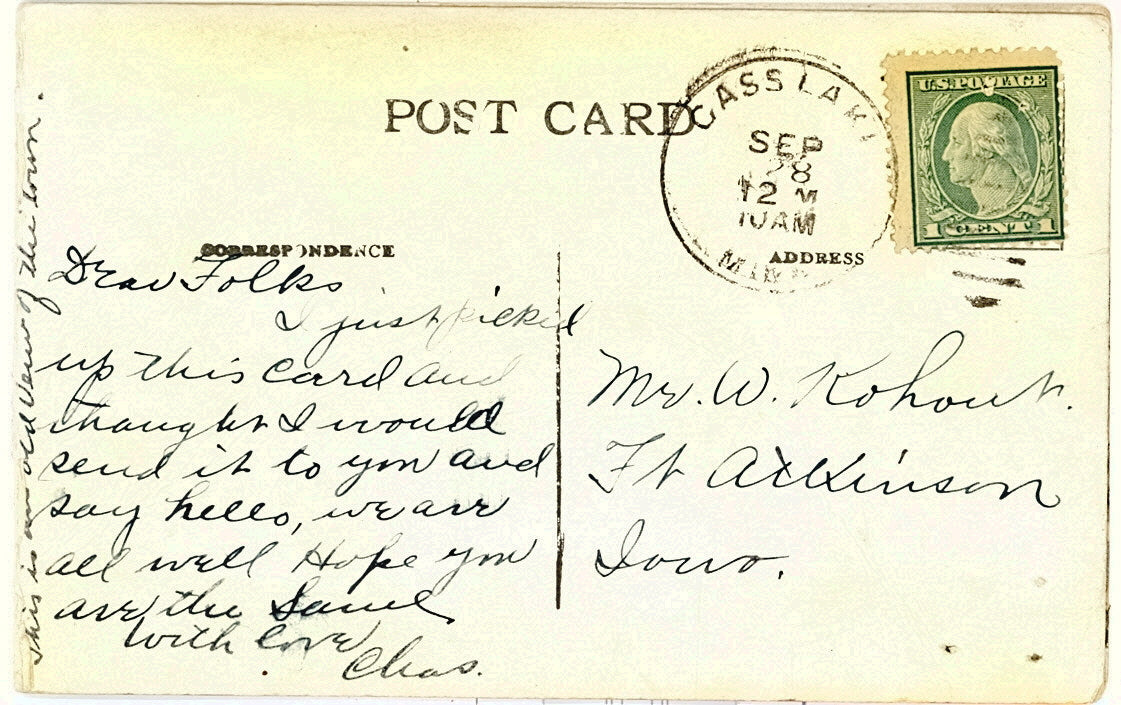 POST CARD
CASS LAKE
SEP
28
12 M
10AM
MINN
U.S. POSTAGE
1 CENT 1
CORRESPONDENCE
ADDRESS
Dear Folks
I just picked
up this card and
thought I would
send it to you and
say hello, we are
all well Hope you
are the Same
with love
Chas.
This is an old view of the town.
Mr. W. Kohout.
Ft Atkinson
Iowa.